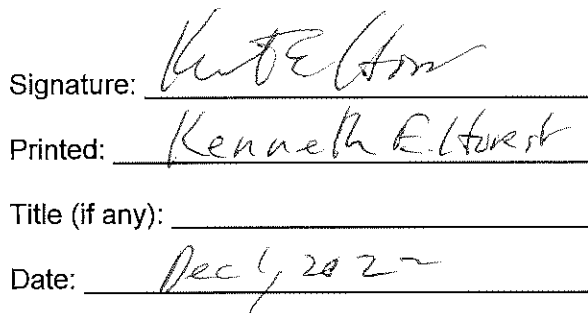 Signature:
Printed: Kenneth E. Horst
Title (if any):
Date: Dec 1, 2022